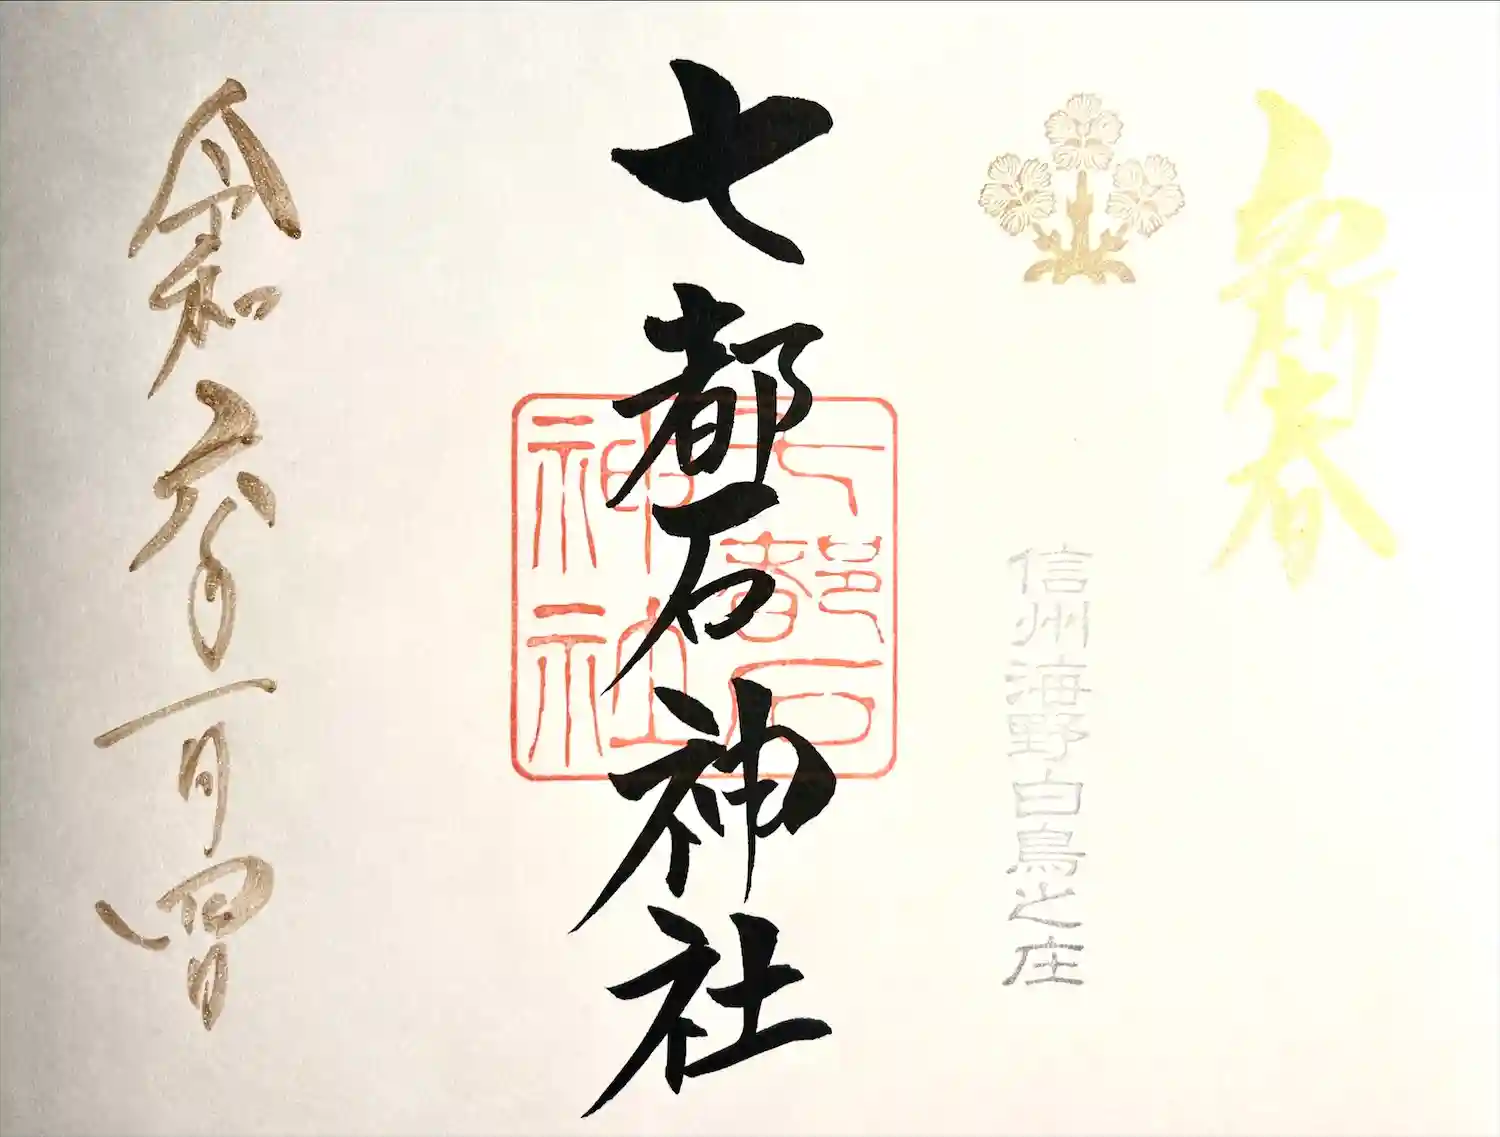 新春
信州海野白鳥之庄
七都石神社
七都石神社
令和六年一月四日